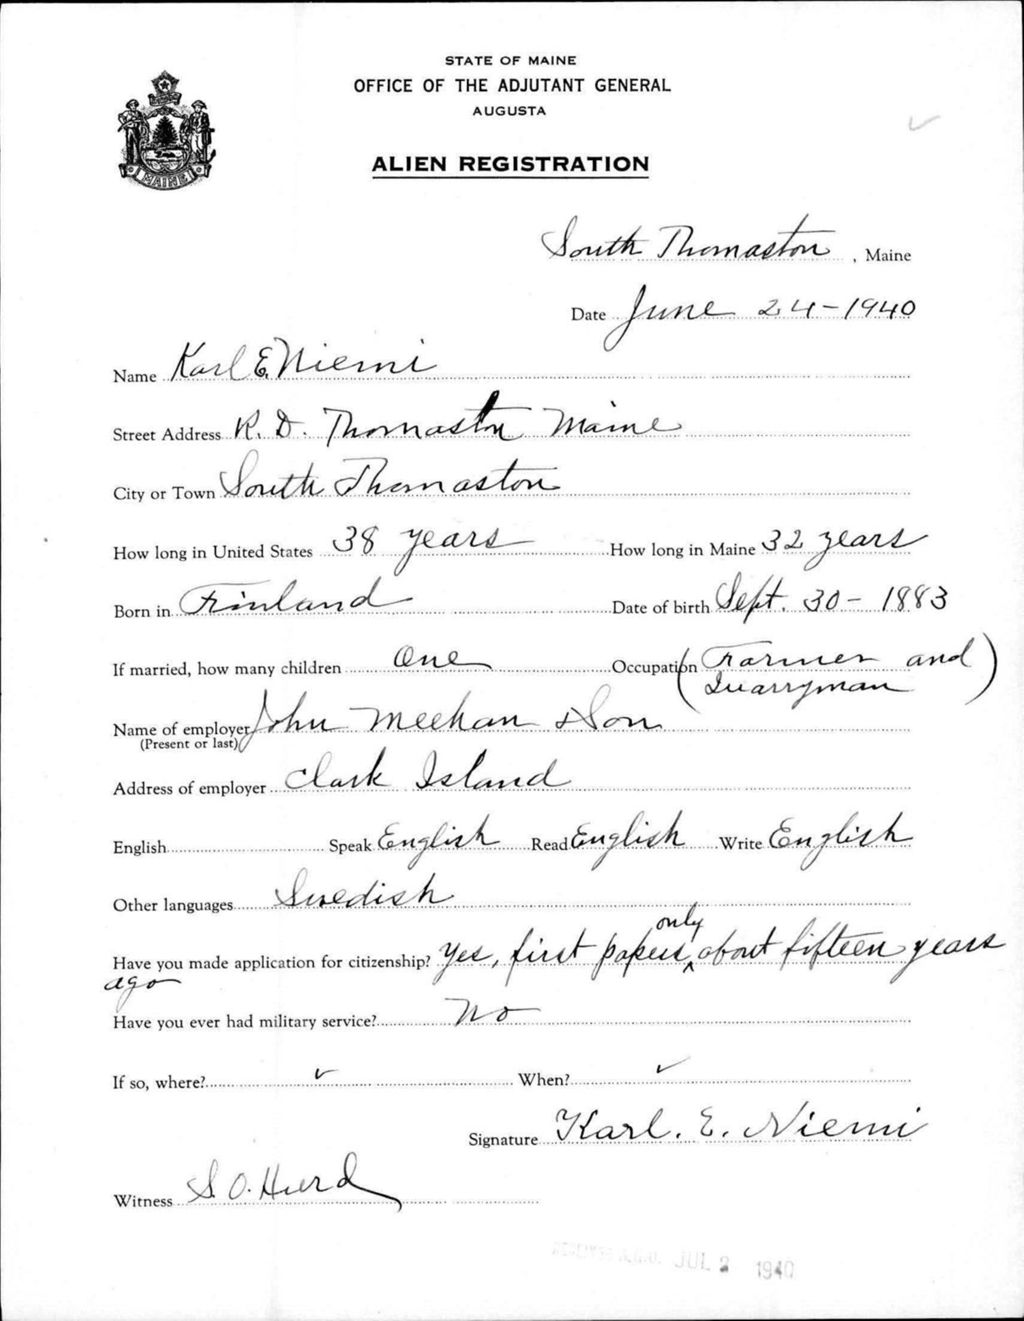 STATE OF MAINE
OFFICE OF THE ADJUTANT GENERAL
AUGUSTA
ALIEN REGISTRATION
MAINE
South Thomaston, Maine
Date June 24-1940
Name Karl E. Niemi
Street Address R. D. Thomaston Maine
City or Town South Thomaston
How long in United States 38 years How long in Maine 32 years
Born in Finland Date of birth Sept. 30-1883
If married, how many children One Occupation (Farmer and
Quarryman)
Name of employer John Meehan & Son
(Present or last)
Address of employer Clark Island
English Speak English Read English Write English
Other languages Swedish
Have you made application for citizenship? Yes, first papers only about fifteen years
ago
Have you ever had military service? No
If so, where? ✓ When? ✓
Signature Karl. E. Niemi
Witness S. O. Hurd
RECEIVED A.G.O. JUL 2 1940